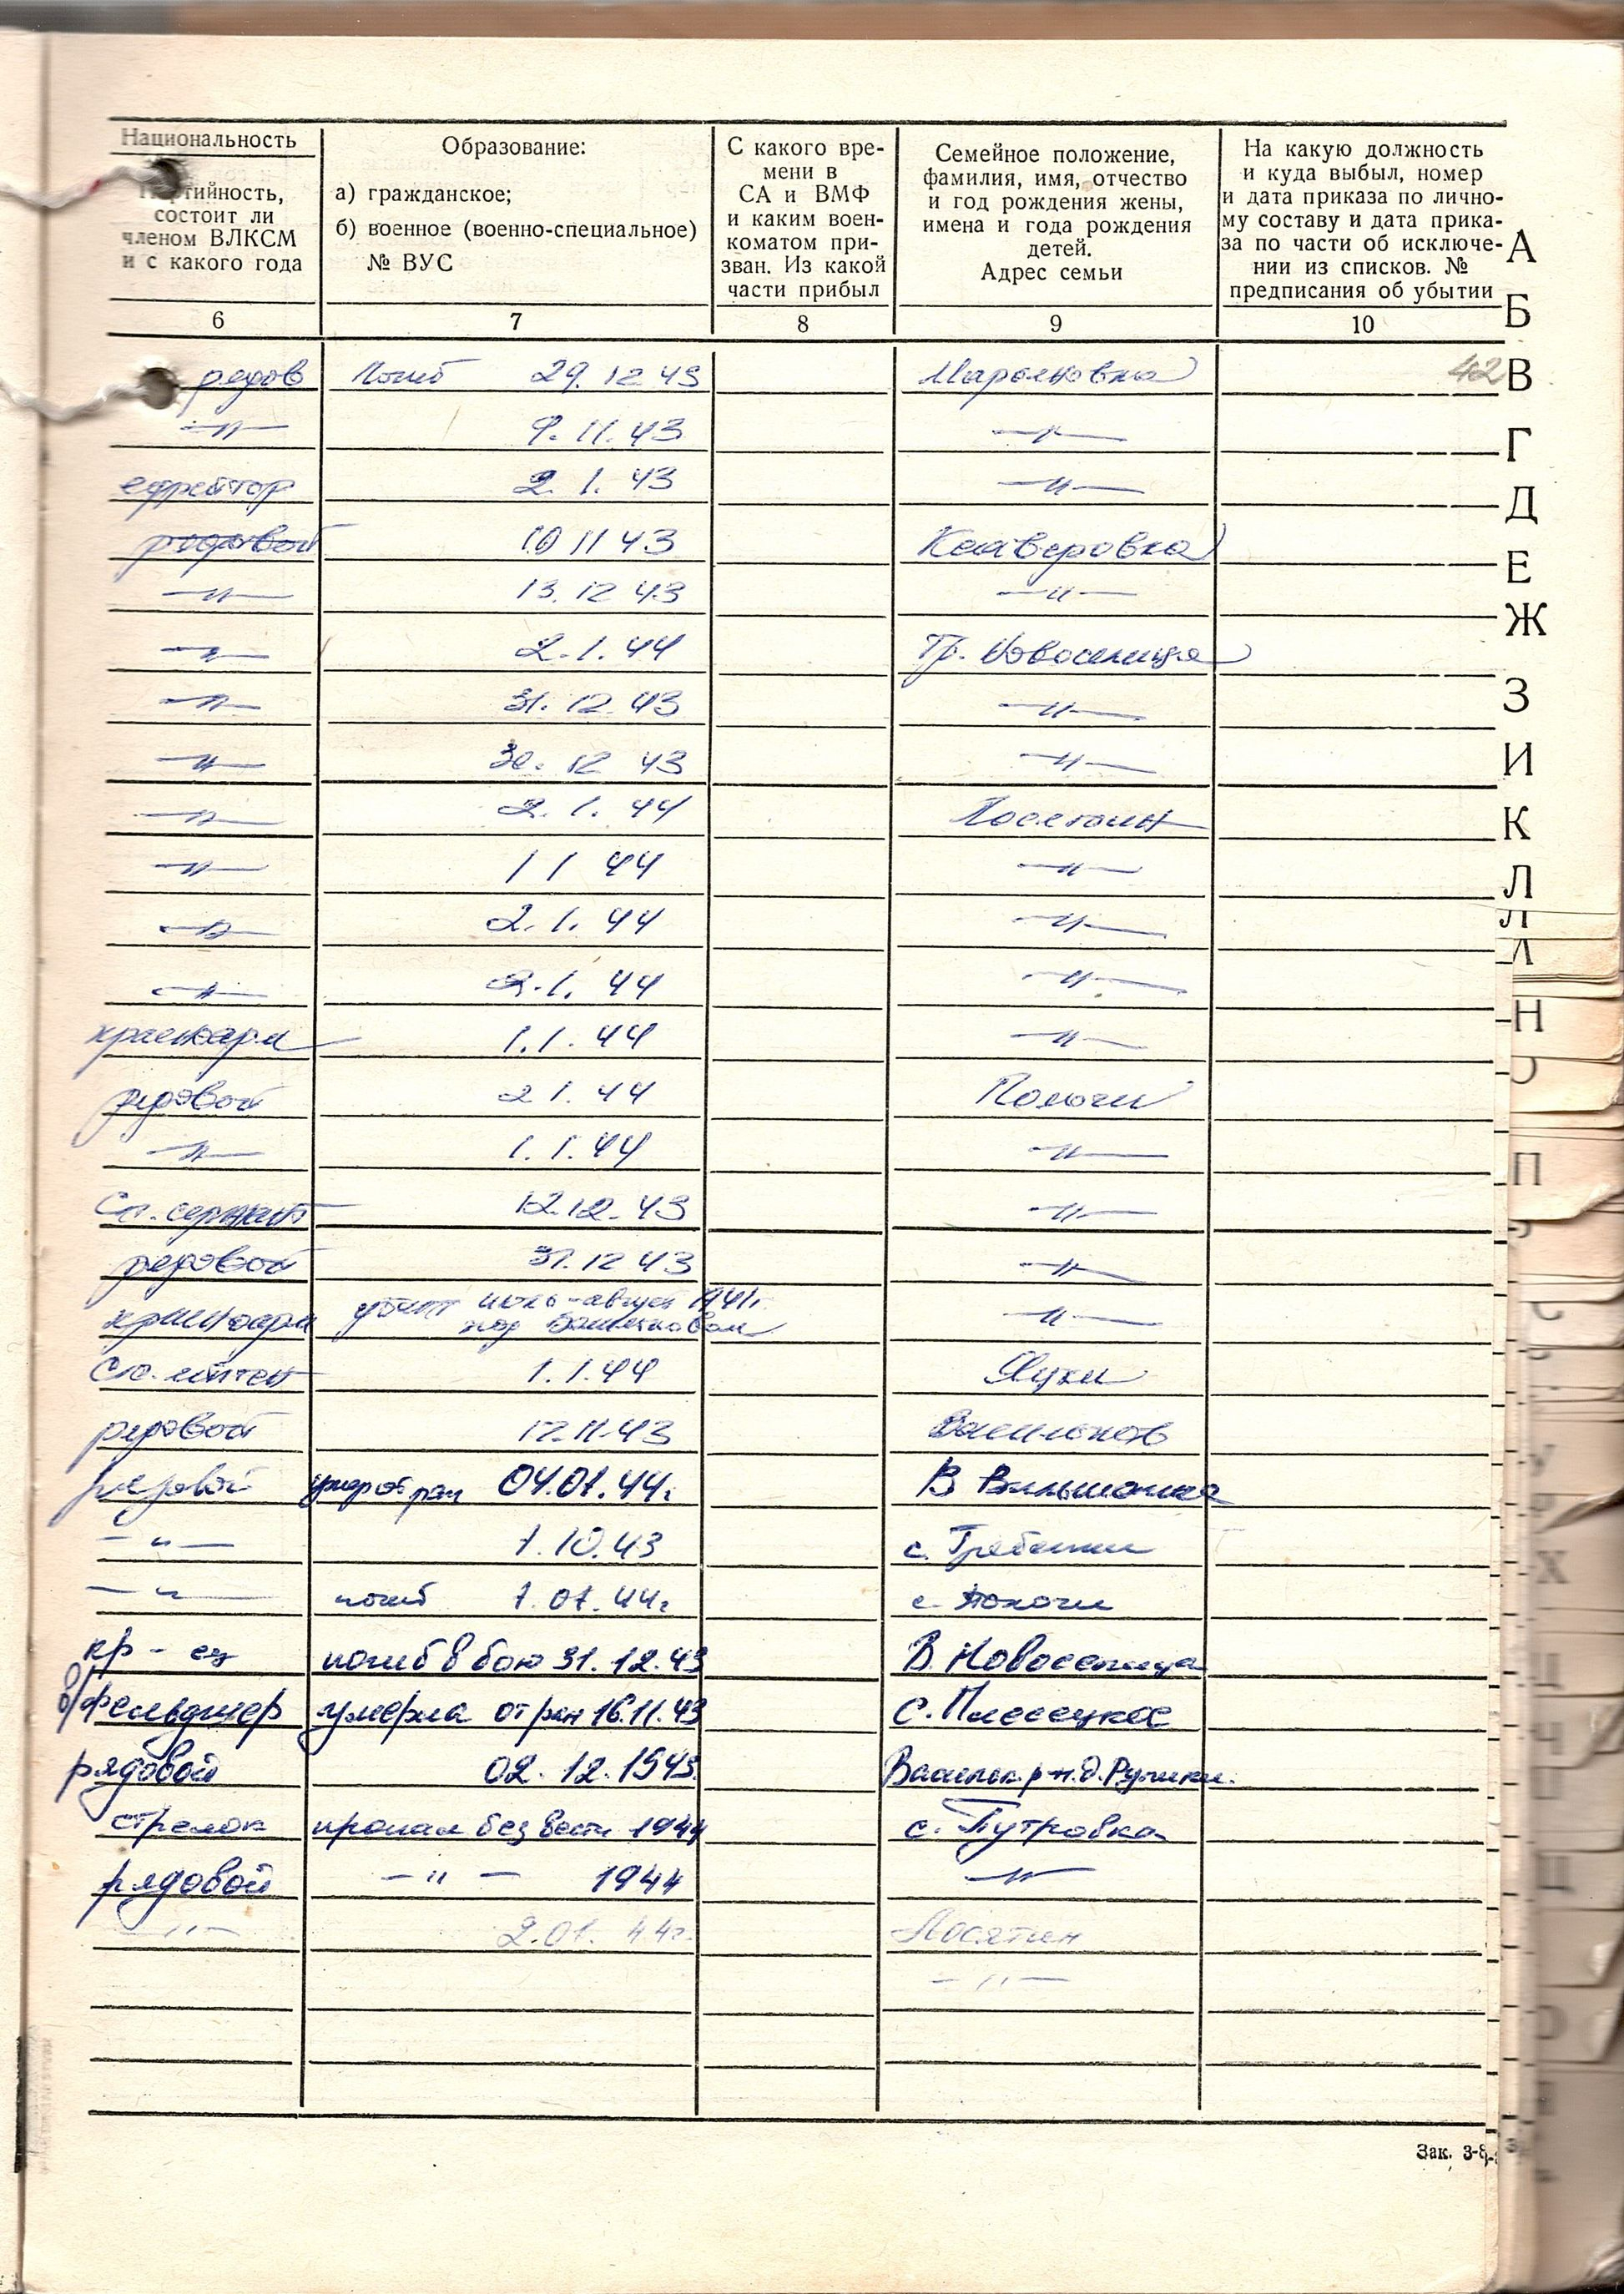 Национальность
Партийность,
состоит ли
членом ВЛКСМ
и с какого года
Образование:
а) гражданское;
б) военное (военно-специальное)
№ ВУС
С какого вре-
мени в
СА и ВМФ
и каким воен-
коматом при-
зван. Из какой
части прибыл
Семейное положение,
фамилия, имя, отчество
и год рождения жены,
имена и года рождения
детей.
Адрес семьи
На какую должность
и куда выбыл, номер
и дата приказа по лично-
му составу и дата прика-
за по части об исключе-
нии из списков. №
предписания об убытии
6 7 8 9 10
рядов Погиб 29.12 43 Марьяновка 42
—"— 9.11.43 —"—
ефрейтор 2.1.43 —"—
рядовой 10 11 43 Ксаверовка
—"— 13.12 43 —"—
—"— 2.1.44 Гр. Новоселица
—"— 31.12.43 —"—
—"— 30.12 43 —"—
—"— 2.1.44 Лосятин
—"— 1 1 44 —"—
—"— 2.1.44 —"—
—"— 2.1.44 —"—
красноарм 1.1.44 —"—
рядовой 2 1.44 Пологи
—"— 1.1.44 —"—
Ст. сержант 12.12.43 —"—
рядовой 31.12 43 —"—
красноарм убит июль-август 1941г.
под —"—
Ст. лейтен 1.1.44 Яцки
рядовой 12.11.43 Васильков
рядовой умер от ран 04.01.44г В
—"— 1.10.43 с. Гребенки
—"— погиб 1.01.44г с. Пологи
кр-ец погиб в бою 31.12.43 В. Новоселица
в/фельдшер умерла от ран 16.11.43 с. Плесецкое
рядовой 02.12.1943. Васильк. р-н. д.
стрелок пропал без вести 1944 с. Путровка
рядовой —"— 1944 —"—
—"— 2.01.44г. Лосятин
—"—
А
Б
В
Г
Д
Е
Ж
З
И
К
Л
Л
Н
П
Х
Зак. 3-8